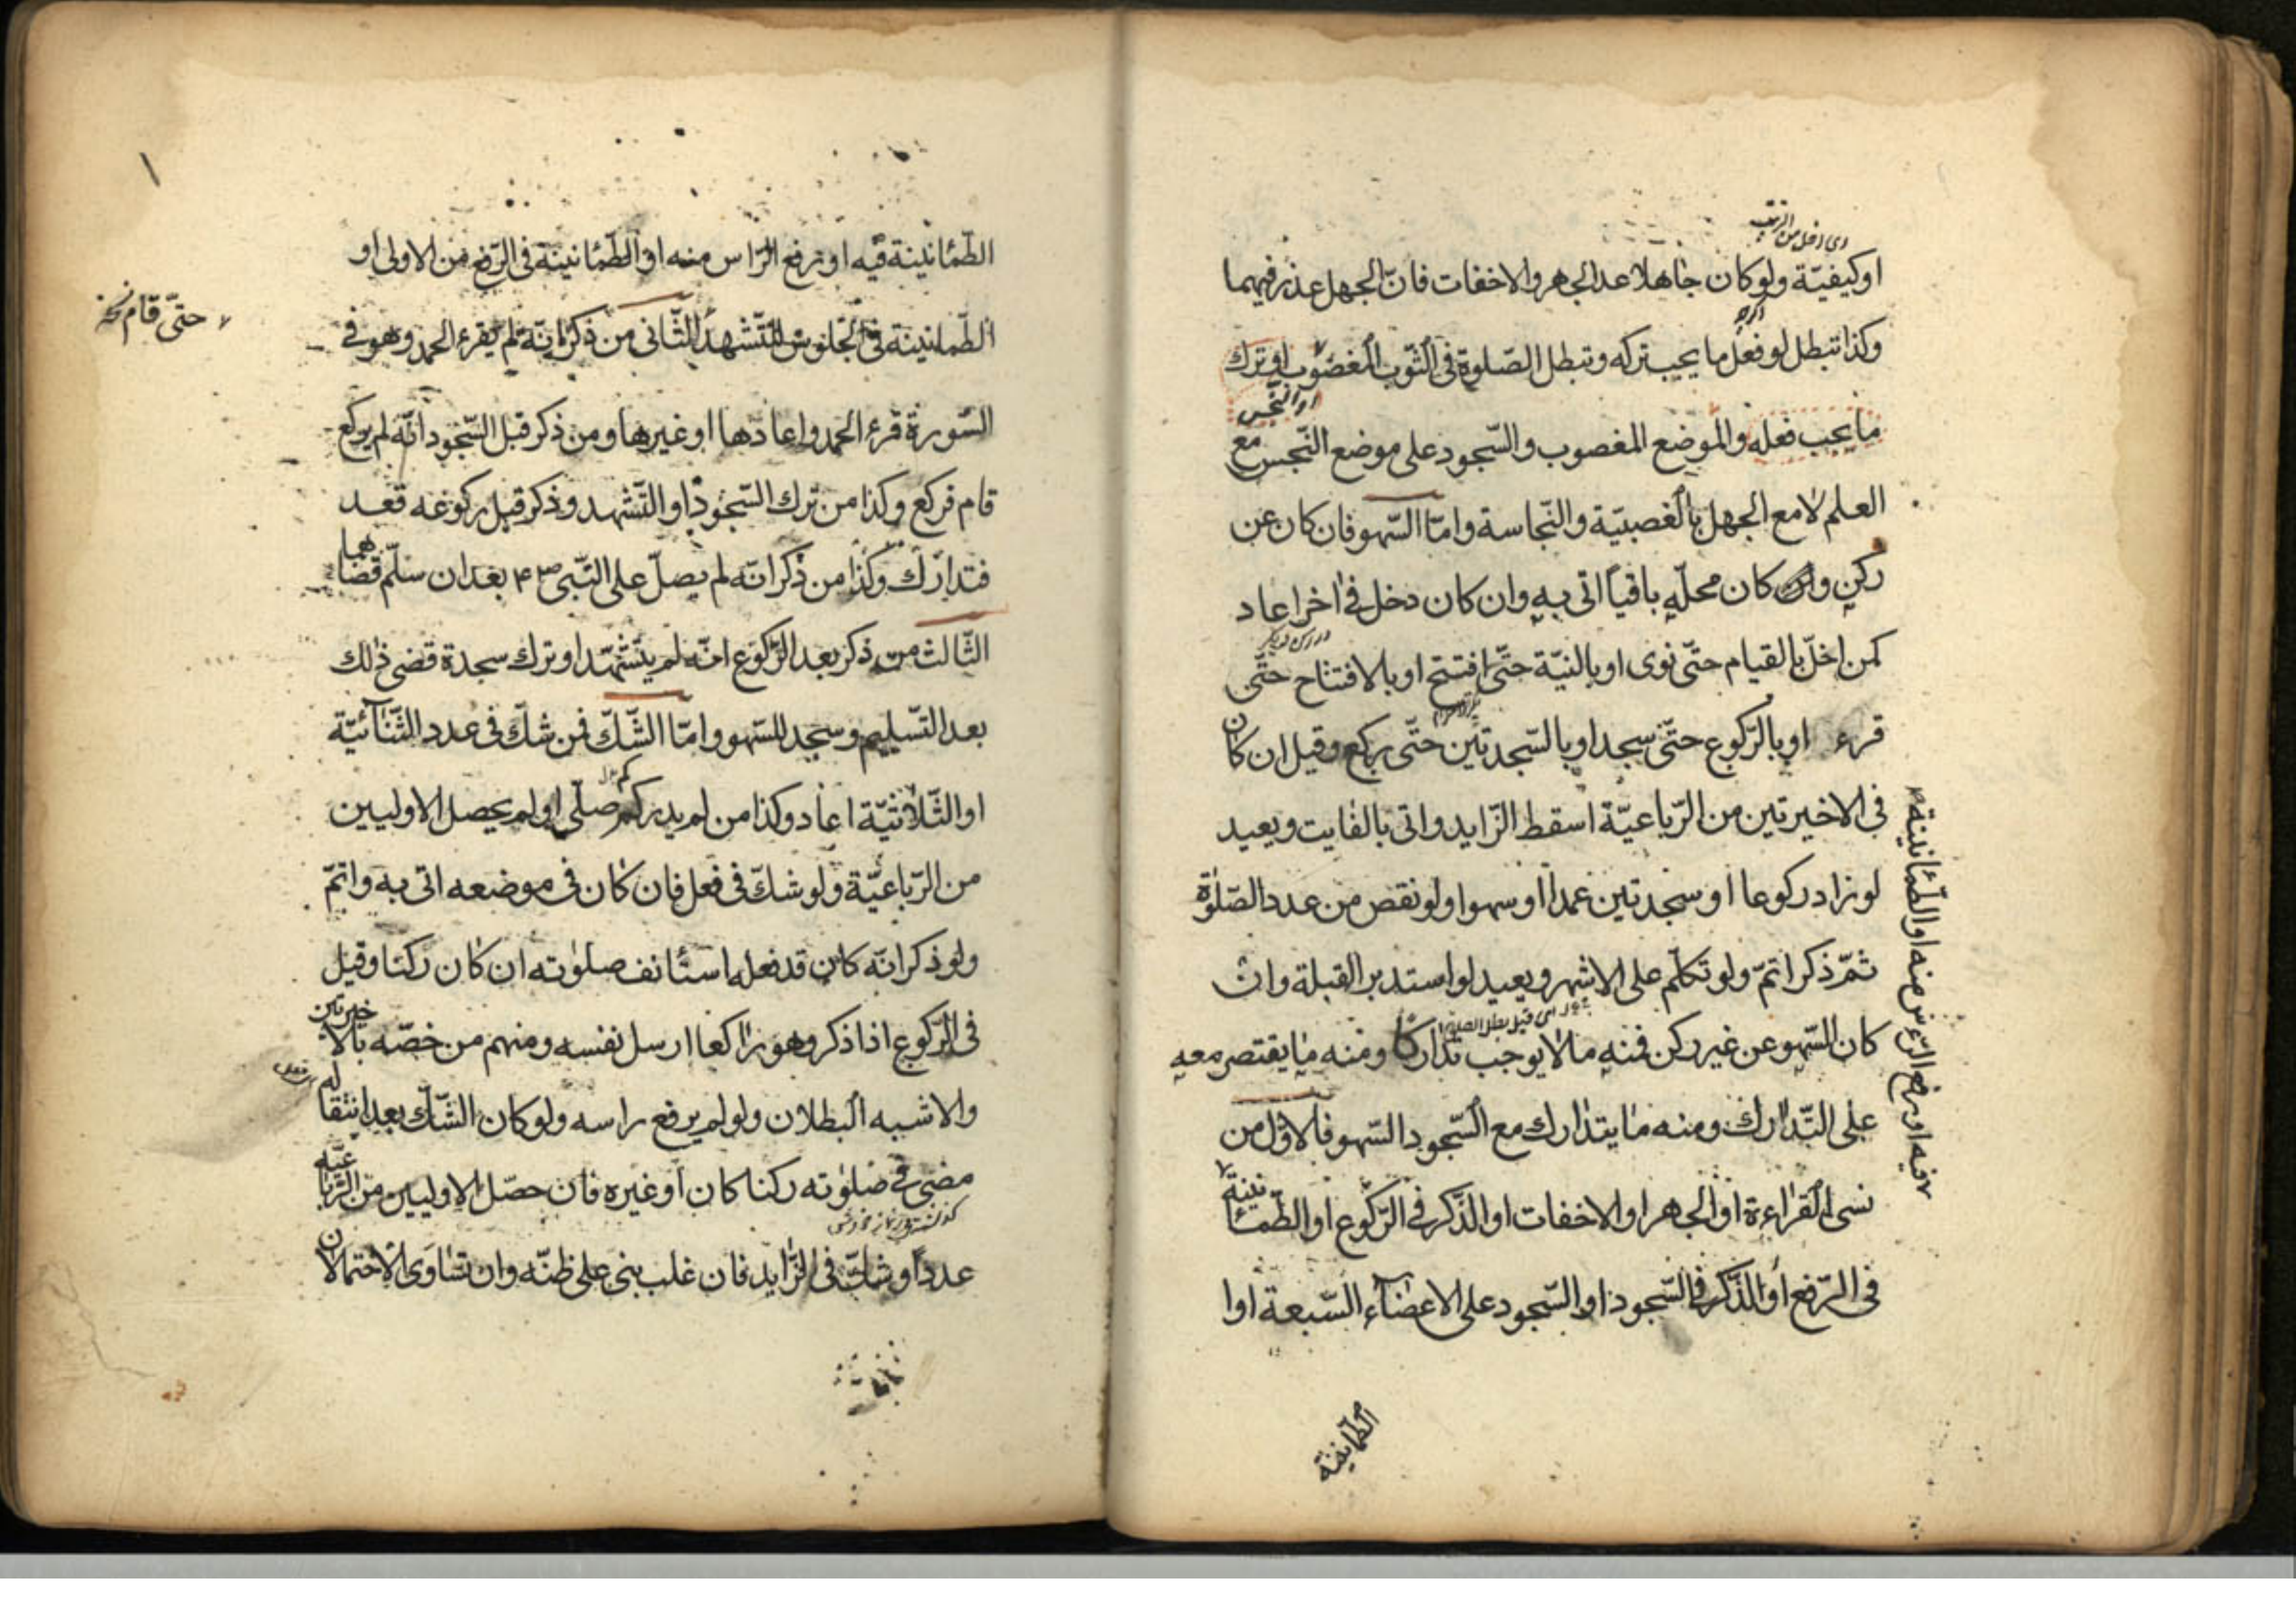 او كيفيّة ولو كان جاهلا عدا الجهر والاخفات فانّ الجهل عذر فيهما
وكذا تبطل لو فعل ما يجب تركه وتبطل الصّلوة فى الثّوب المغصوب او ترك
او النّجس
ما يجب فعله والموضع المغصوب والسّجود على موضع النّجس مع
العلم لا مع الجهل بالغصبيّة والنّجاسة وامّا السّهو فان كان عن
ركن و كان محلّه باقياً اتى به وان كان دخل فى اخر اعاد
كمن اخلّ بالقيام حتّى نوى او بالنيّة حتّى افتتح او بالافتتاح حتّى
قرء او بالرّكوع حتّى سجد او بالسّجدتين حتّى يركع وقيل ان كان
فى الاخيرتين من الرّباعيّة اسقط الزّايد واتى بالفايت ويعيد
لو زاد ركوعا او سجدتين عمداً او سهوا ولو نقص من عدد الصّلوة
ثمّ ذكر اتمّ ولو تكلّم على الاشهر ويعيد لو استدبر القبلة وان
كان السّهو عن غير ركن فمنه ما لا يوجب تداركا ومنه ما يقتصر معه
على التّدارك ومنه ما يتدارك مع السّجود السّهو فالاوّل من
نسى القراءة او الجهر او الاخفات او الذّكر فى الرّكوع او الطّمأنينة
فى الرّفع او الذّكر فى السّجود او السّجود على الاعضآء السّبعة او ا
الطمانينة
فيه او رفع الرّءس منه او الطّمأنينة
الطّمأنينة فيه او رفع الرّاس منه او الطّمأنينة فى الرّفع من الاولى او
الطّمانينة فى الجلوس للتّشهد الثّانى من ذكر انّه لم يقرء الحمد وهو فى
حتّى قام نخ
السّورة قرء الحمد واعادها او غيرها ومن ذكر قبل السّجود انّه لم يركع
قام فركع وكذا من ترك السّجود او التّشهد وذكر قبل ركوعه قعد
فتدارك وكذا من ذكر انّه لم يصلّ على النّبى ص ٤ بعد ان سلّم قضاهما
الثّالث من ذكر بعد الرّكوع انّه لم يتشهّد او ترك سجدة قضى ذلك
بعد التّسليم وسجد للسّهو وامّا الشّكّ فمن شكّ فى عدد الثّنآئيّة
او الثّلاثيّة اعاد وكذا من لم يدر كم صلّى او لم يحصل الاوليين
من الرّباعيّة ولو شكّ فى فعل فان كان فى موضعه اتى به واتمّ
ولو ذكر انّه كان قد فعله استأنف صلوته ان كان ركنا وقيل
فى الرّكوع اذا ذكر وهو راكعا ارسل نفسه ومنهم من خصّه بالاخيرتين
والاشبه البطلان ولو لم يرفع راسه ولو كان الشّكّ بعد انتقاله
مضى فى صلوته ركنا كان او غيره فان حصّل الاوليين من الرّباعيّة
عدداً وشكّ فى الزّايد فان غلب بنى على ظنّه وان تساوى الاحتمالان